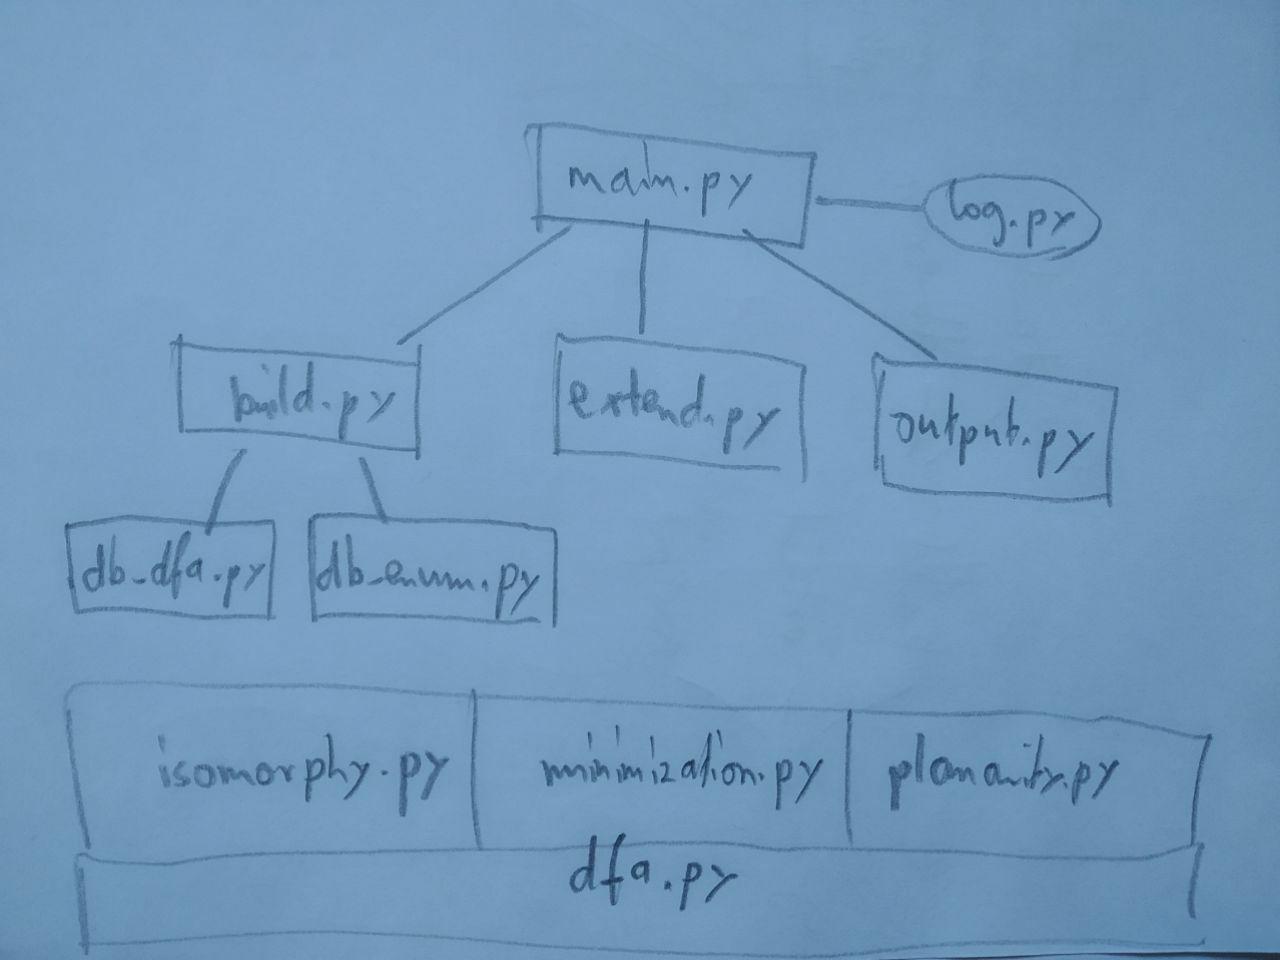 main.py
log.py
build.py
extend.py
output.py
db_dfa.py
db_enum.py
isomorphy.py
minimization.py
planarity.py
dfa.py